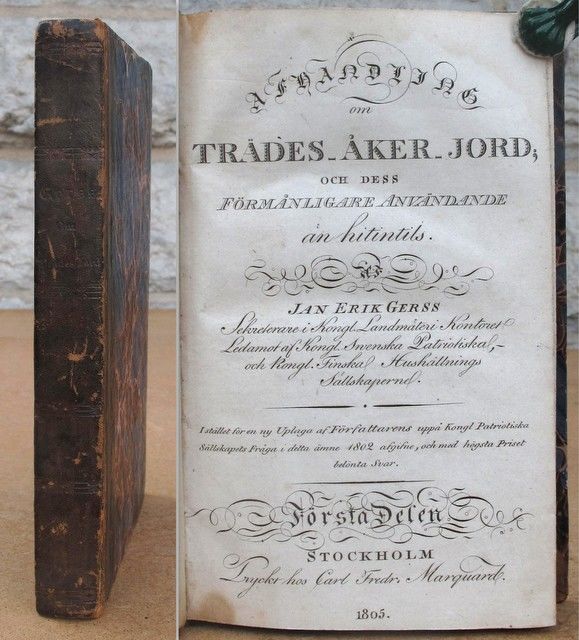 AFHANDLING
om
TRÄDES-ÅKER-JORD;
OCH DESS
FÖRMÅNLIGARE ANVÄNDANDE
än hitintils.
AF
JAN ERIK GERSS
Sekreterare i Kongl. Landmäteri Kontoret
Ledamot af Kongl. Swenska Patriotiska,-
och Kongl. Finska Hushållnings
Sällskaperne.
I stället för en ny Uplaga af Författarens uppå Kongl Patriotiska
Sällskapets Fråga i detta ämne 1802 afgifne, och med högsta Priset
belönta Svar.
Första Delen.
STOCKHOLM
Tryckt hos Carl Fredr. Marquard.
1805.